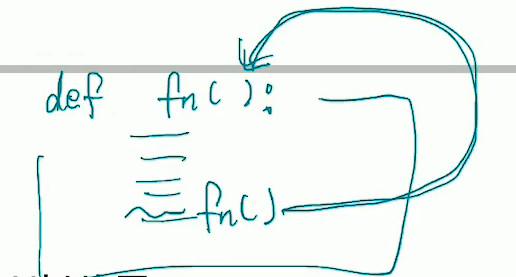 def fn():
fn()